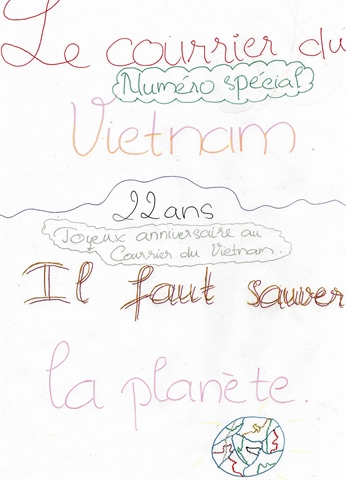 Le courrier du
Numéro spécial
Vietnam
22 ans
Joyeux anniversaire au
Courrier du Vietnam.
Il faut sauver
la planète.